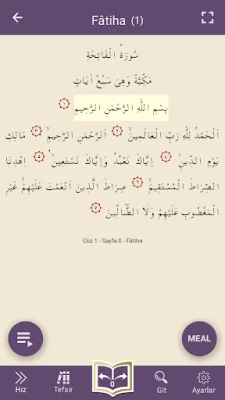 Fâtiha (1)
سُورَةُ الْفَاتِحَةِ
مَكِّيَّةٌ وَهِىَ سَبْعُ اٰيَاتٍ
بِسْمِ اللّٰهِ الرَّحْمٰنِ الرَّحٖيمِ ﴿١﴾
اَلْحَمْدُ لِلّٰهِ رَبِّ الْعَالَمٖينَۙ ﴿٢﴾ اَلرَّحْمٰنِ الرَّحٖيمِۙ ﴿٣﴾ مَالِكِ
يَوْمِ الدّٖينِۜ ﴿٤﴾ اِيَّاكَ نَعْبُدُ وَاِيَّاكَ نَسْتَعٖينُۜ ﴿٥﴾ اِهْدِنَا
الصِّرَاطَ الْمُسْتَقٖيمَۙ ﴿٦﴾ صِرَاطَ الَّذٖينَ اَنْعَمْتَ عَلَيْهِمْۙ غَيْرِ
الْمَغْضُوبِ عَلَيْهِمْ وَلَا الضَّٓالّٖينَ ﴿٧﴾
Cüz 1 - Sayfa 0 - Fâtiha
MEAL
0
Hız Tefsir Git Ayarlar